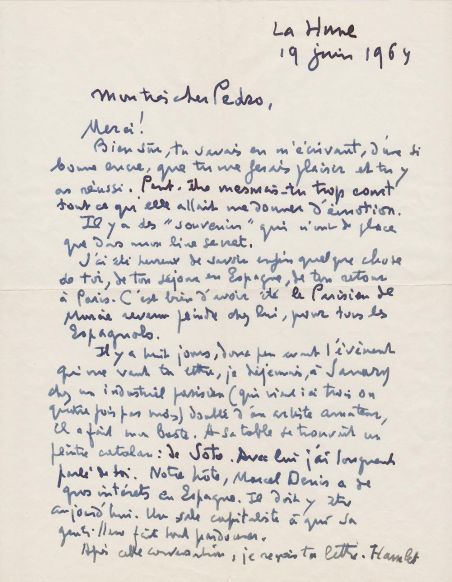 La Hune
19 juin 1964
Mon très cher Pedro,
Merci!
Bien sûr, tu savais en m'écrivant, d'une si
bonne encre, que tu me ferais plaisir et tu y
as réussi. Peut-être mesurais-tu trop court
tout ce qu'elle allait me donner d'émotion.
Il y a des "souvenirs" qui n'ont de place
que dans mon livre secret.
J'ai été heureux de savoir enfin quelque chose
de toi, de ton séjour en Espagne, de ton retour
à Paris. C'est bien d'avoir été le Parisien de
Murcie revenu peindre chez lui, pour tous les
Espagnols.
Il y a huit jours, donc peu avant l'événement
qui me vaut ta lettre, je déjeunais, à Sanary
chez un industriel parisien (qui vient ici trois ou
quatre fois par mois) doublé d'un artiste amateur,
Il a fait mon buste. A sa table se trouvait un
peintre catalan: de Soto. Avec lui j'ai longuement
parlé de toi. Notre hôte, Marcel Denis a de
gros intérêts en Espagne. Il doit y être
aujourd'hui. Un sale capitaliste à qui sa
gentillesse fait tout pardonner.
Après cette conversation, je reçois ta lettre. Hamlet